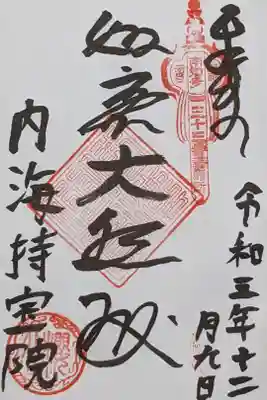 奉拝
令和三年十二
月九日
如意大悲殿
内海持宝院